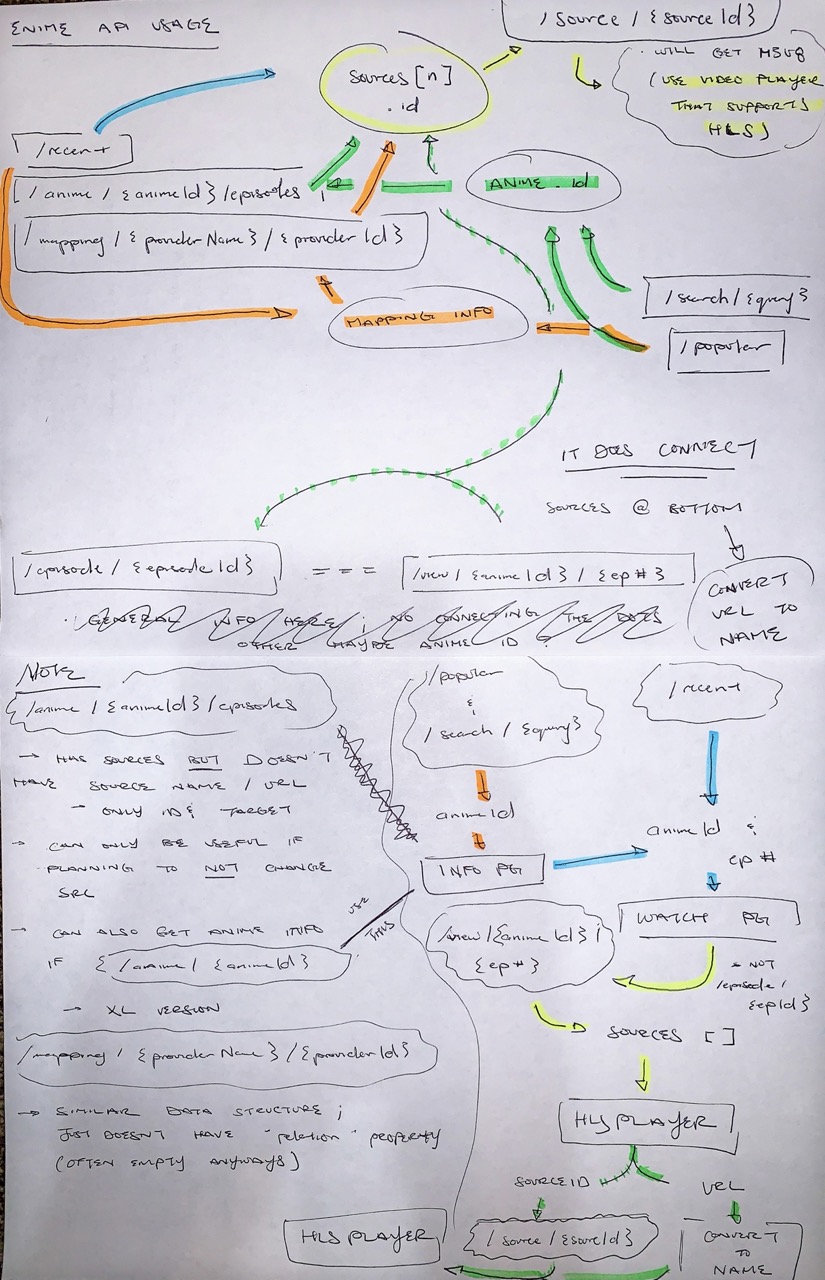 ENIME API USAGE
/source/{sourceId}
Sources[n]
.id
· WILL GET M3U8
(USE VIDEO PLAYER
THAT SUPPORTS
HLS)
/recent
/anime/{animeId}/episodes
ANIME.id
/mapping/{providerName}/{providerId}
/search/{query}
MAPPING INFO
/popular
IT DOES CONNECT
SOURCES @ BOTTOM
/episode/{episodeId}
===
/view/{animeId}/{ep#}
CONVERT
URL TO
NAME
· GENERAL INFO HERE; NO CONNECTING THE DOTS
OTHER MAYBE ANIME ID?
NOTE
/anime/{animeId}/episodes
→ HAS SOURCES BUT DOESN'T
HAVE SOURCE NAME/URL
→ ONLY ID & TARGET
→ CAN ONLY BE USEFUL IF
PLANNING TO NOT CHANGE
SRC
→ CAN ALSO GET ANIME INFO
IF {/anime/{animeId}
→ XL VERSION
USE
THIS
/mapping/{providerName}/{providerId}
→ SIMILAR DATA STRUCTURE;
JUST DOESN'T HAVE "relation" PROPERTY
(OFTEN EMPTY ANYWAYS)
/popular
&
/search/{query}
animeId
INFO PG
/recent
animeId &
ep #
WATCH PG
/view/{animeId}/
{ep#}
* NOT
/episode/
{epId}
SOURCES []
HLS PLAYER
SOURCE ID
URL
HLS PLAYER
/source/{sourceId}
CONVERT
TO
NAME